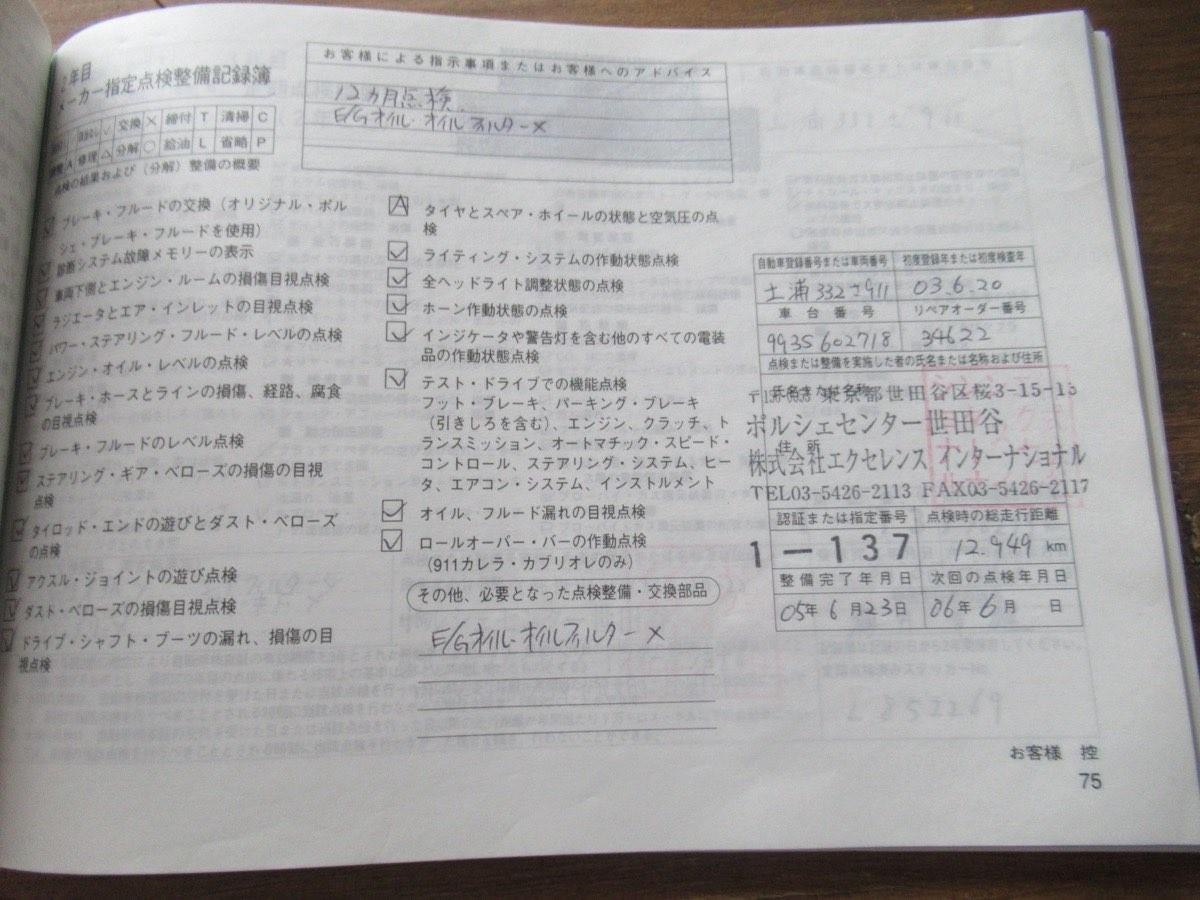 2年目
メーカー指定点検整備記録簿
交換 × 締付 T 清掃 C
A 修理 △ 分解 ○ 給油 L 省略 P
点検の結果および（分解）整備の概要
お客様による指示事項またはお客様へのアドバイス
12カ月点検
E/Gオイル・オイルフィルター×
ブレーキ・フルードの交換（オリジナル・ポル
シェ・ブレーキ・フルードを使用）
診断システム故障メモリーの表示
車両下側とエンジン・ルームの損傷目視点検
ラジエータとエア・インレットの目視点検
パワー・ステアリング・フルード・レベルの点検
エンジン・オイル・レベルの点検
ブレーキ・ホースとラインの損傷、経路、腐食
の目視点検
ブレーキ・フルードのレベル点検
ステアリング・ギア・ベローズの損傷の目視
点検
タイロッド・エンドの遊びとダスト・ベローズ
の点検
アクスル・ジョイントの遊び点検
ダスト・ベローズの損傷目視点検
ドライブ・シャフト・ブーツの漏れ、損傷の目
視点検
A タイヤとスペア・ホイールの状態と空気圧の点
検
ライティング・システムの作動状態点検
全ヘッドライト調整状態の点検
ホーン作動状態の点検
インジケータや警告灯を含む他のすべての電装
品の作動状態点検
テスト・ドライブでの機能点検
フット・ブレーキ、パーキング・ブレーキ
（引きしろを含む）、エンジン、クラッチ、ト
ランスミッション、オートマチック・スピード・
コントロール、ステアリング・システム、ヒー
タ、エアコン・システム、インストルメント
オイル、フルード漏れの目視点検
ロールオーバー・バーの作動点検
（911カレラ・カブリオレのみ）
その他、必要となった点検整備・交換部品
E/Gオイル・オイルフィルター×
自動車登録番号または車両番号 初度登録年または初度検査年
土浦 332 さ 911 03.6.20
車台番号 リペアオーダー番号
9935602718 34622
点検または整備を実施した者の氏名または名称および住所
氏名または名称
東京都世田谷区桜3-15-15
ポルシェセンター世田谷
住所
株式会社エクセレンス インターナショナル
TEL03-5426-2113 FAX03-5426-2117
認証または指定番号 点検時の総走行距離
1－137 12.949 km
整備完了年月日 次回の点検年月日
05年 6月 23日 06年 6月 日
L852269
お客様 控
75